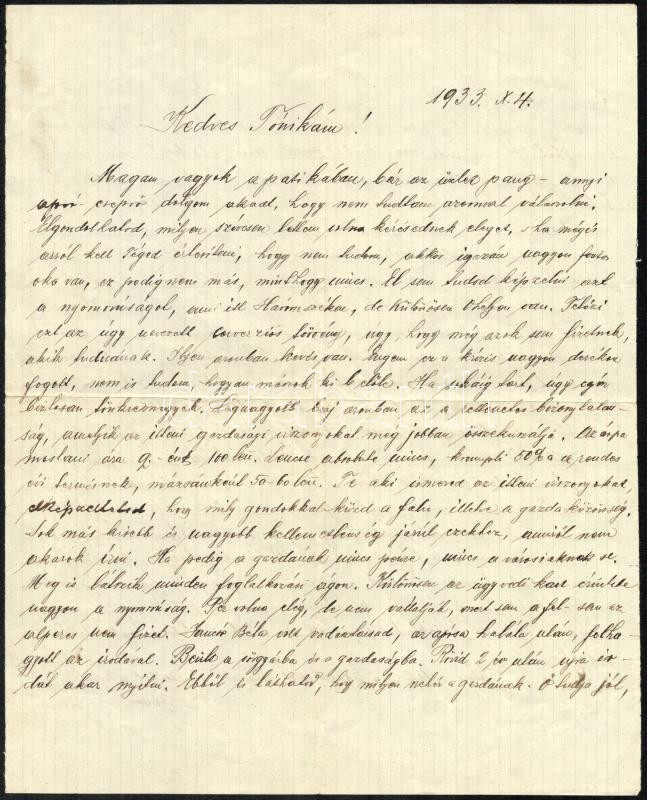 1933. X. 4.
Kedves Tónikám!
Magam vagyok a patikában, bár az üzlet pang - annyi
apró-cseprő dolgom akad, hogy nem tudtam azonnal válaszolni.
Elgondolhatod, milyen szívesen lettem volna kérésednek eleget, s ha mégis
arról kell Téged értesíteni, hogy nem tudom, akkor igazán nagyon fontos
oka van, ez pedig nem más, mint hogy nincs. El sem tudod képzelni azt
a nyomorúságot, ami itt Háromszéken, de különösen van.
ezt az úgy nevezett conversiós törvény, úgy, hogy még azok sem fizetnek,
akik tudnának. Ilyen azonban kevés van. Engem ez a krízis nagyon derékon
fogott, nem is tudom, hogyan mászok ki belőle. Ha sokáig tart, úgy egész
biztosan tönkremegyek. Legnagyobb baj azonban az a rettenetes bizonytalan-
ság, amelyik az itteni gazdasági viszonyokat még jobban összekuszálja. Az árpa
mostani ára q-ént 100 lei. Lencse absolute nincs, krumpli 50%-a a rendes
évi termésnek, mázsánként 50-60 lei. Te aki ismered az itteni viszonyokat
elképzelheted, hogy mily gondokkal küzd a falu, illetve a gazdaközönség.
Sok más kisebb és nagyobb kellemetlenség járul ezekhez, amiről nem
akarok írni. Ha pedig a gazdának nincs pénze, nincs a városiaknak se.
Meg is látszik minden foglalkozási ágon. Különösen az ügyvédi kart érintette
nagyon a nyomorúság. Per volna elég, de nem vállalják, mert sem a fel- sem az
alperes nem fizet. Jancsó Béla volt vadásztársad, az apósa halála után, felha-
gyott az irodával. Beült a sörgyárba és a gazdaságba. Rövid 2 év után újra iro-
dát akar nyitni. Ebből is láthatod, hogy milyen nehéz a gazdának. Ő tudja jól,